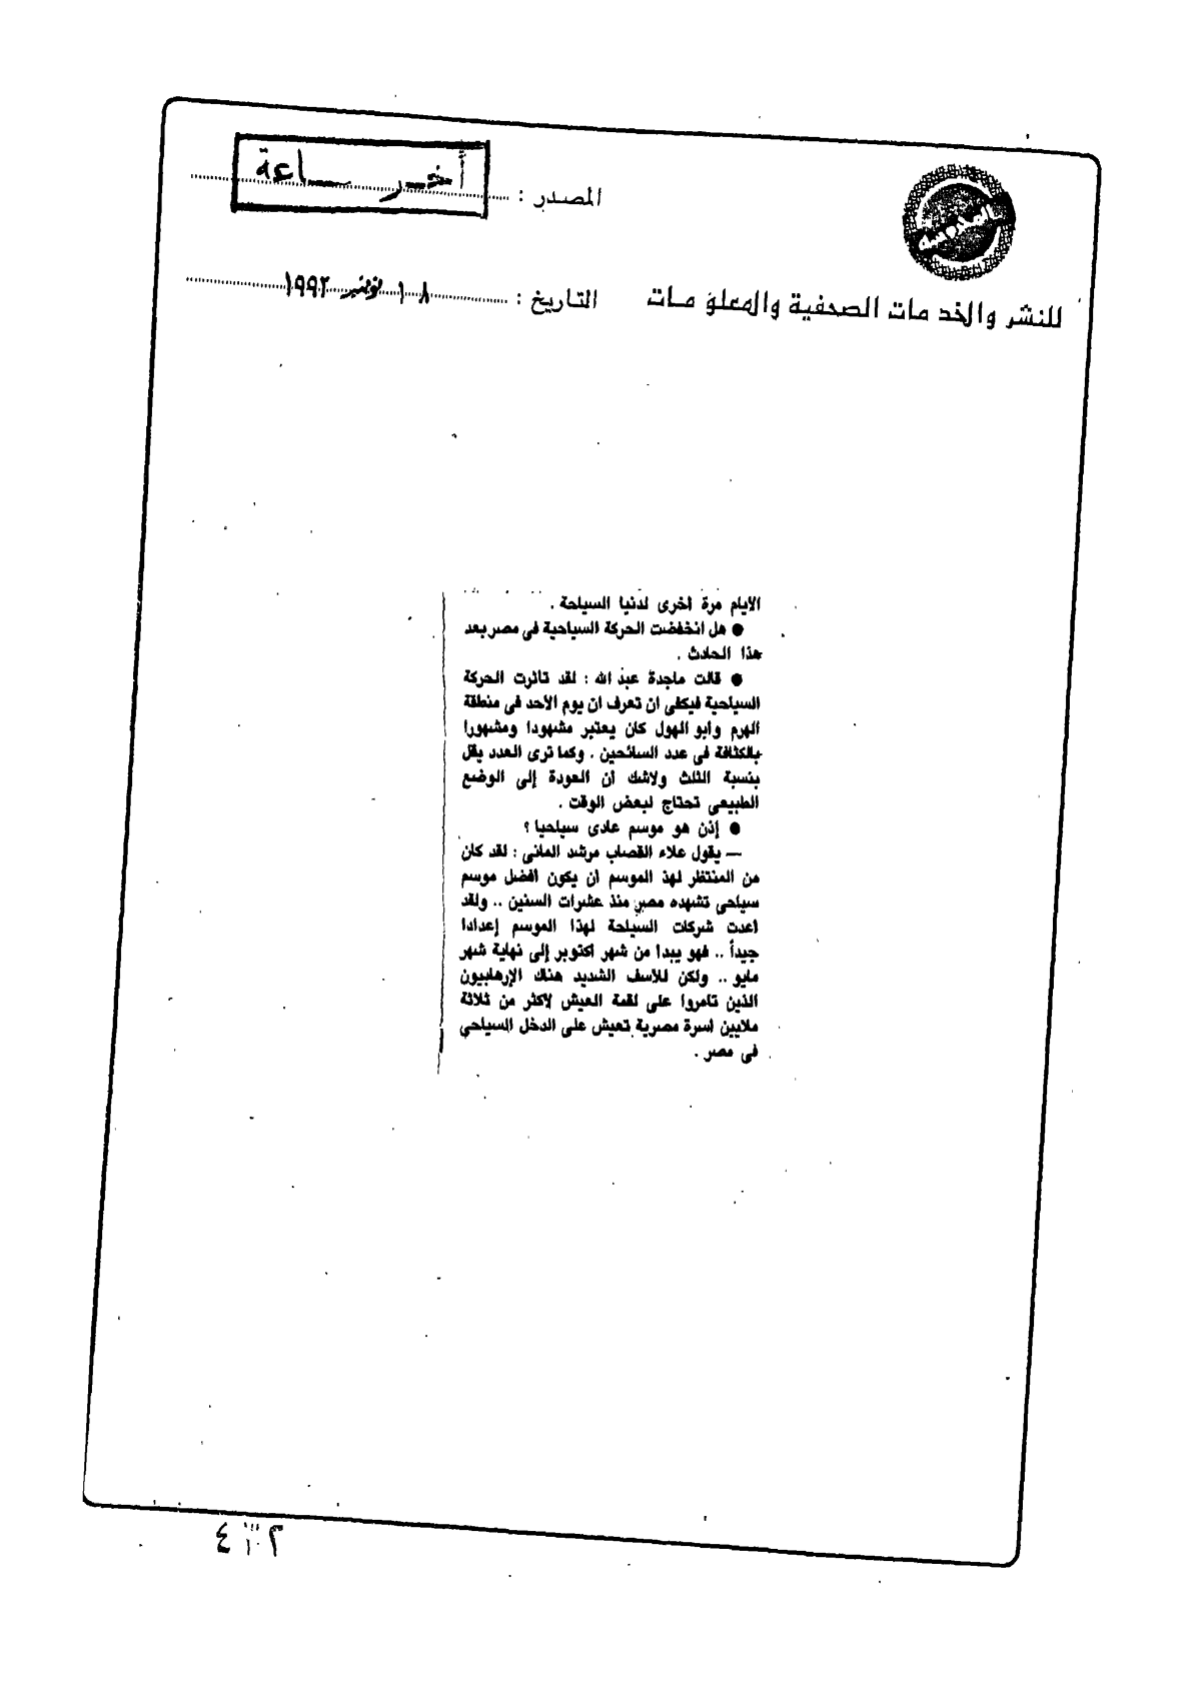 المصدر : أخر ساعة
التاريخ : ١٨ نوفمبر ١٩٩٢
للنشر والخدمات الصحفية والمعلومات
الأيام مرة أخرى لدنيا السياحة .
● هل انخفضت الحركة السياحية فى مصر بعد
هذا الحادث .
● قالت ماجدة عبد الله : لقد تاثرت الحركة
السياحية فيكفى ان تعرف ان يوم الأحد فى منطقة
الهرم وأبو الهول كان يعتبر مشهودا ومشهورا
بالكثافة فى عدد السائحين . وكما ترى العدد يقل
بنسبة الثلث ولاشك أن العودة إلى الوضع
الطبيعى تحتاج لبعض الوقت .
● إذن هو موسم عادى سياحيا ؟
— يقول علاء القصاب مرشد المانى : لقد كان
من المنتظر لهذ الموسم أن يكون افضل موسم
سياحى تشهده مصر منذ عشرات السنين .. ولقد
اعدت شركات السياحة لهذا الموسم إعدادا
جيداً .. فهو يبدا من شهر اكتوبر إلى نهاية شهر
مايو .. ولكن للأسف الشديد هناك الإرهابيون
الذين تامروا على لقمة العيش لاكثر من ثلاثة
ملايين اسرة مصرية تعيش على الدخل السياحي
فى مصر .